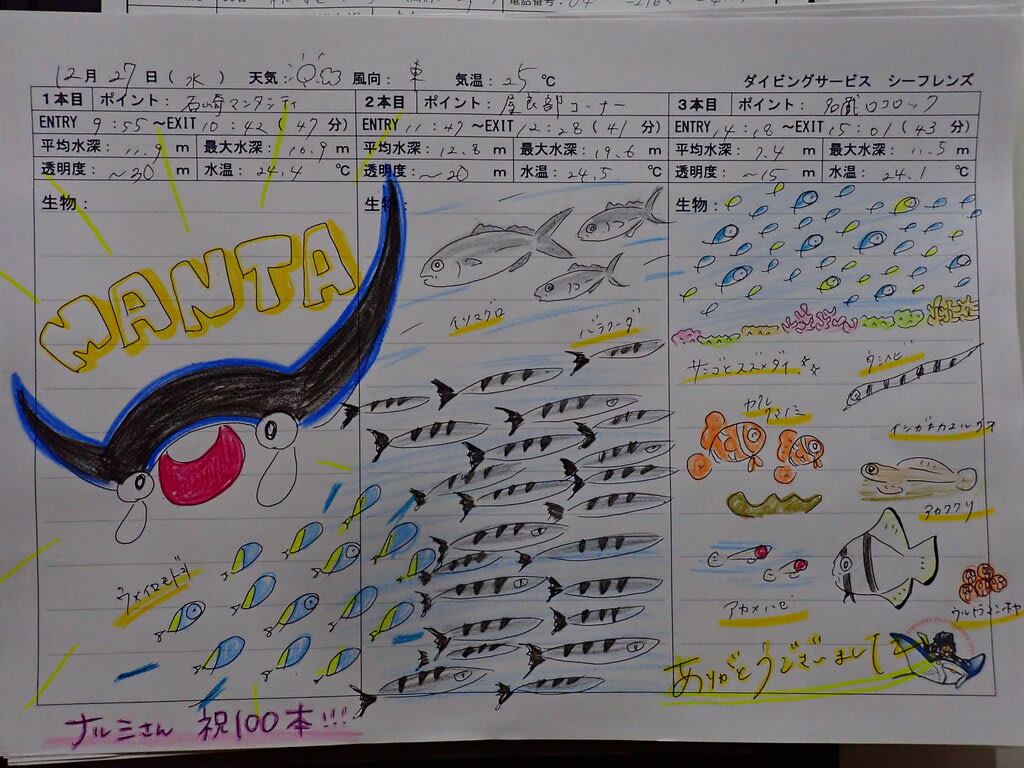 電話番号：04 -2165 -4
12月27日(水) 天気： 風向：東 気温：25℃ ダイビングサービス シーフレンズ
1本目 ポイント：石崎マンタシティ
ENTRY 9:55～EXIT 10:42(47分)
平均水深：11.9 m 最大水深：16.9 m
透明度：～30 m 水温：24.4 ℃
生物：
MANTA
ウメイロモドキ
2本目 ポイント：屋良部コーナー
ENTRY 11:47～EXIT 12:28(41分)
平均水深：12.8 m 最大水深：19.6 m
透明度：～20 m 水温：24.5 ℃
生物：
イソマグロ
バラクーダ
3本目 ポイント：名蔵ロロック
ENTRY 14:18～EXIT 15:01(43分)
平均水深：7.4 m 最大水深：11.5 m
透明度：～15 m 水温：24.1 ℃
生物：
サンゴとスズメダイ
ウミヘビ
カクレクマノミ
イシガキカエルウオ
アカメハゼ
ウルトラマンホヤ
ありがとうございました
ナルミさん 祝100本!!!